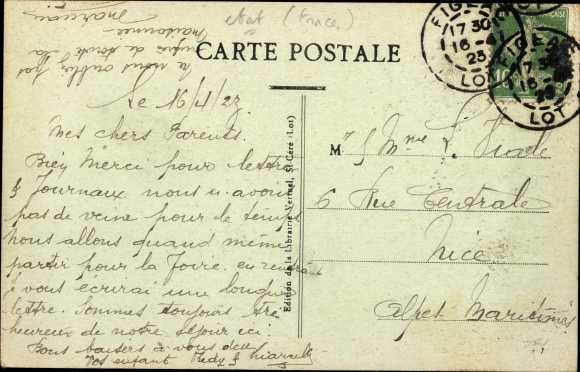 état (traces)
CARTE POSTALE
FIGEAC
17 30
16 - 4
25
LOT
FIGEAC
17 30
16 - 4
LOT
Le 16/4/25
Mes chers Parents.
Bien Merci pour lettre
& Journaux. nous n'avons
pas de veine pour le temps
nous allons quand même
partir pour la Foire. en rentrant
je vous écrirai une longue
lettre. Sommes toujours très
heureux de notre séjour ici.
Bons baisers à vous deux
Vos enfant &
Edition de la Librairie Vertuel, St-Céré (Lot)
M
& Mme
6 Rue Centrale
Nice
Alpes Maritimes